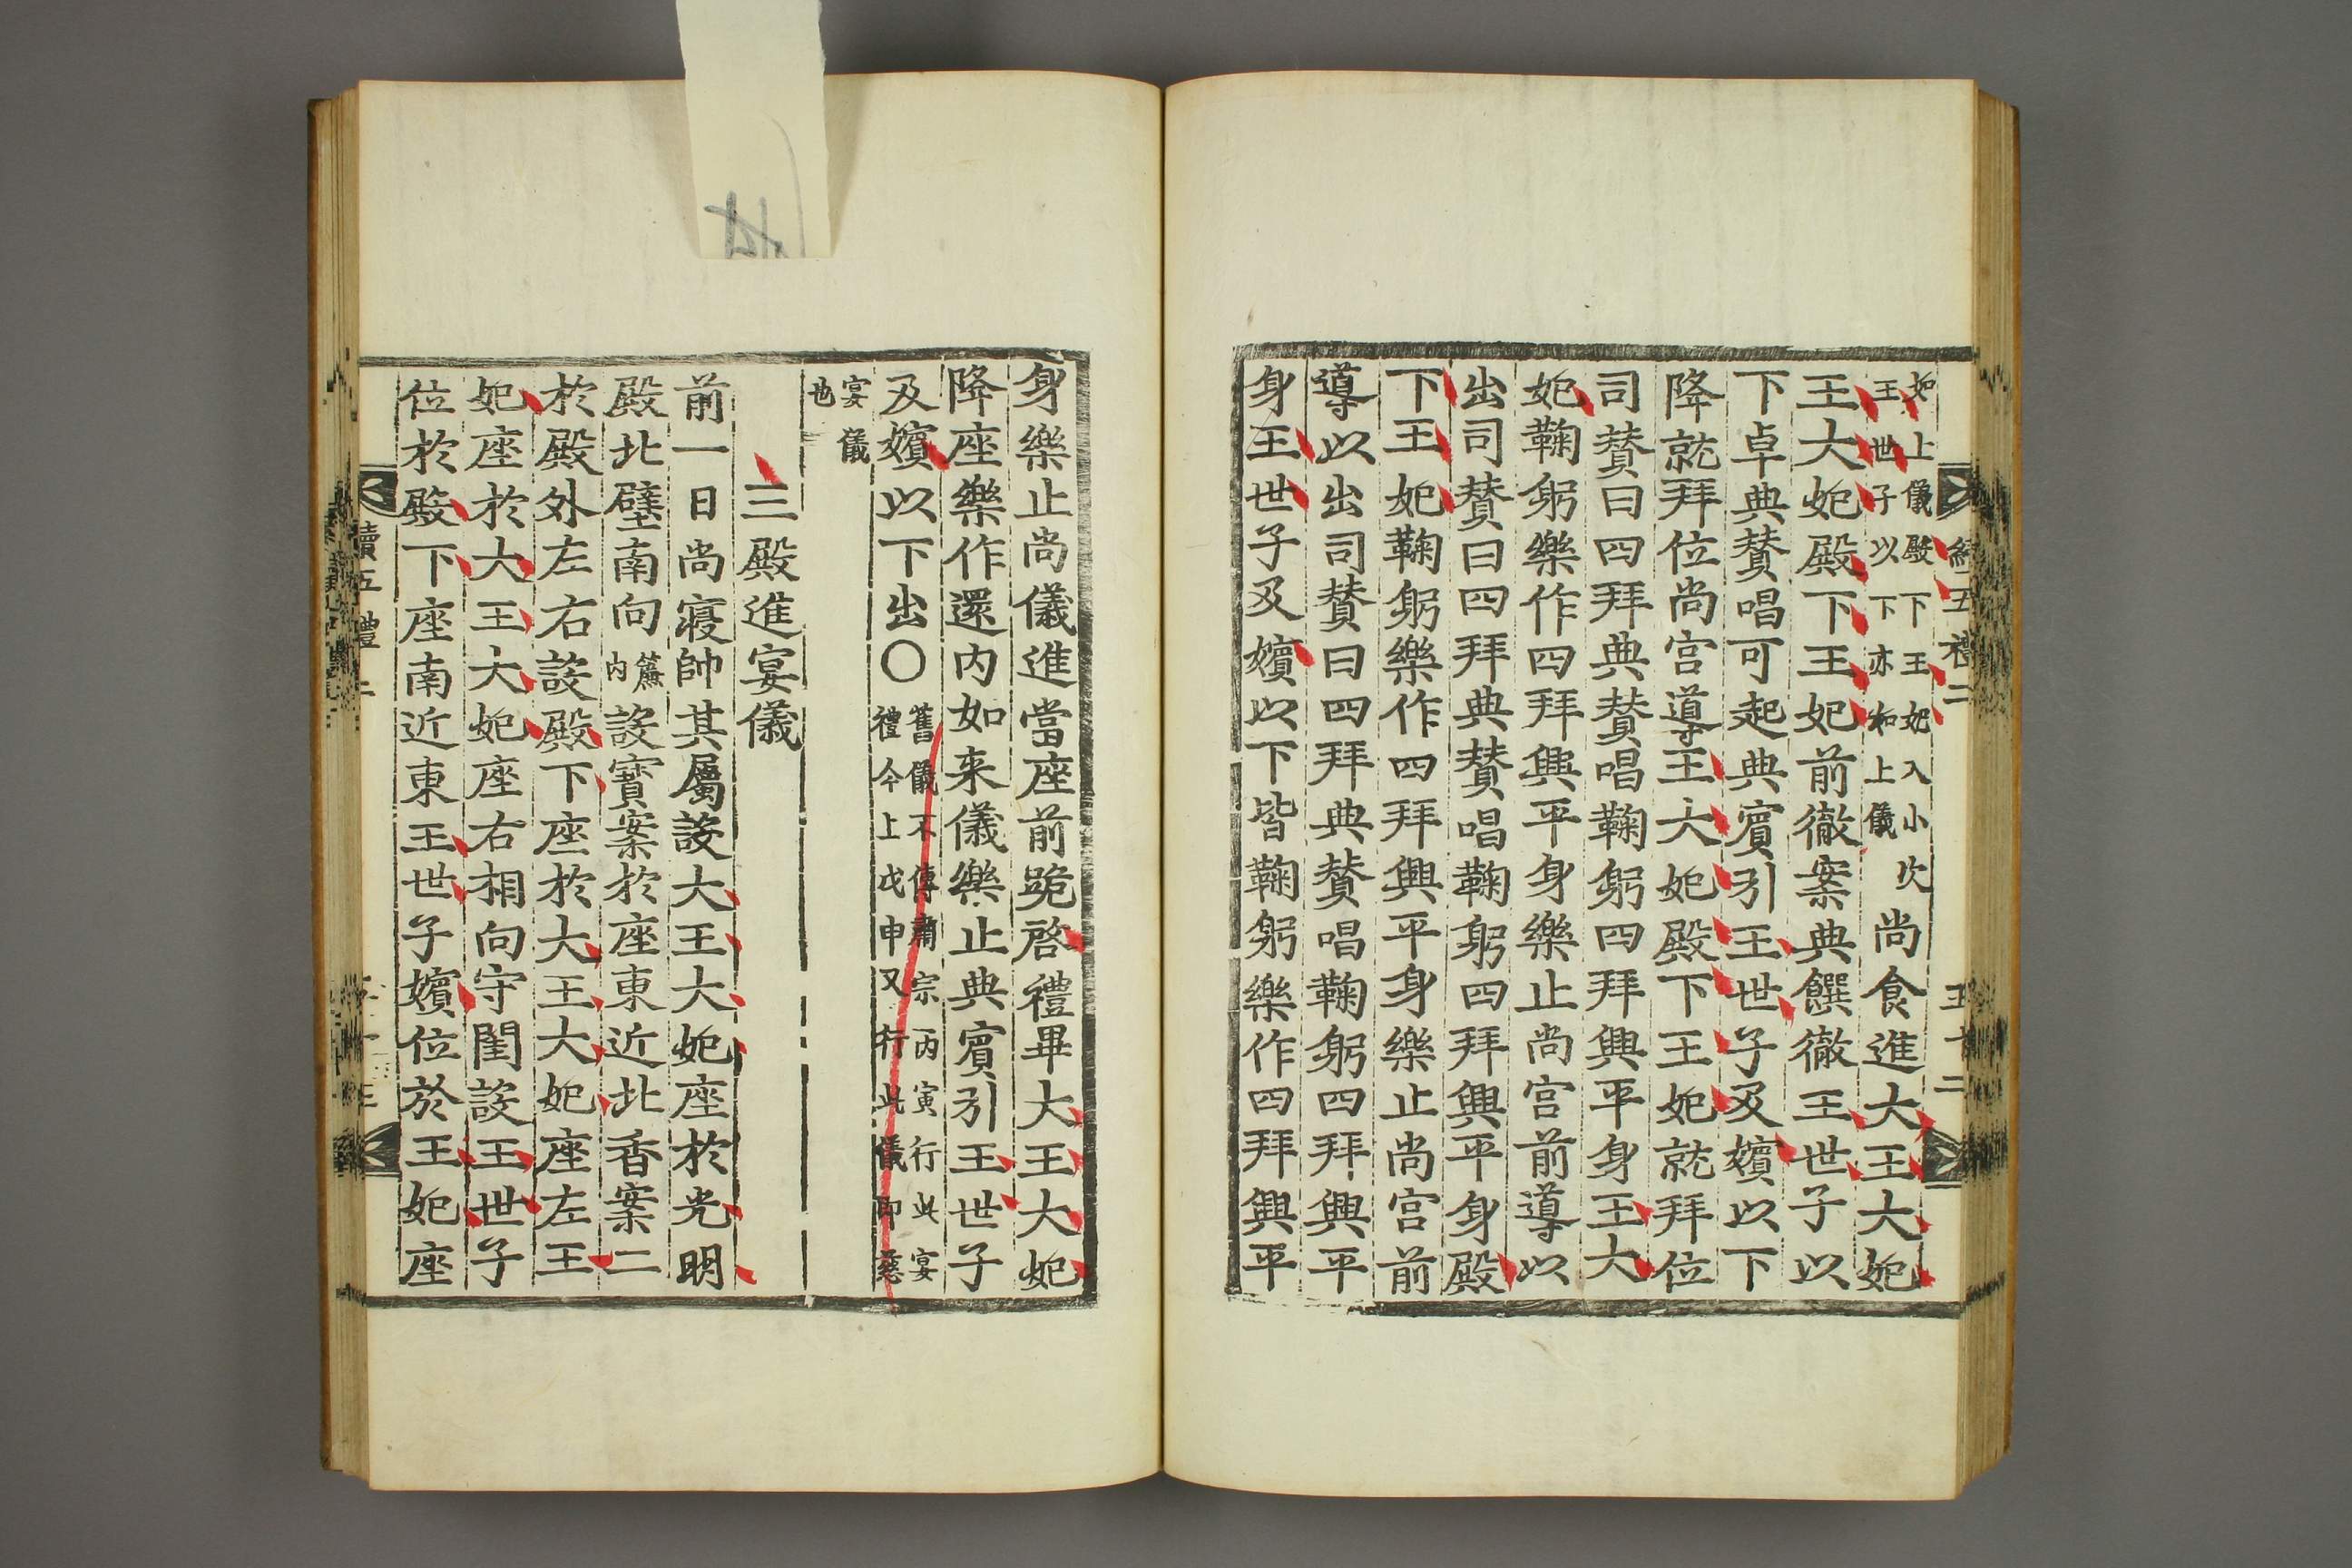 如上儀殿下王妃入小次
王世子以下亦如上儀
尚食進大王大妃
王大妃殿下王妃前徹案典饌徹王世子以
下卓典賛唱可起典賓引王世子及嬪以下
降就拜位尚宮導王大妃殿下王妃就拜位
司賛曰四拜典賛唱鞠躬四拜興平身王大
妃鞠躬樂作四拜興平身樂止尚宮前導以
出司賛曰四拜典賛唱鞠躬四拜興平身殿
下王妃鞠躬樂作四拜興平身樂止尚宮前
導以出司賛曰四拜典賛唱鞠躬四拜興平
身王世子及嬪以下皆鞠躬樂作四拜興平
身樂止尚儀進當座前跪啓禮畢大王大妃
降座樂作還內如来儀樂止典賓引王世子
及嬪以下出〇
舊儀不傳肅宗丙寅行此宴
禮今上戊申又行此儀即慈
宴儀
也
三殿進宴儀
前一日尚寢帥其屬設大王大妃座於光明
殿北壁南向簾內設寶案於座東近北香案二
於殿外左右設殿下座於大王大妃座左王
妃座於大王大妃座右相向守閨設王世子
位於殿下座南近東王世子嬪位於王妃座
續五禮二